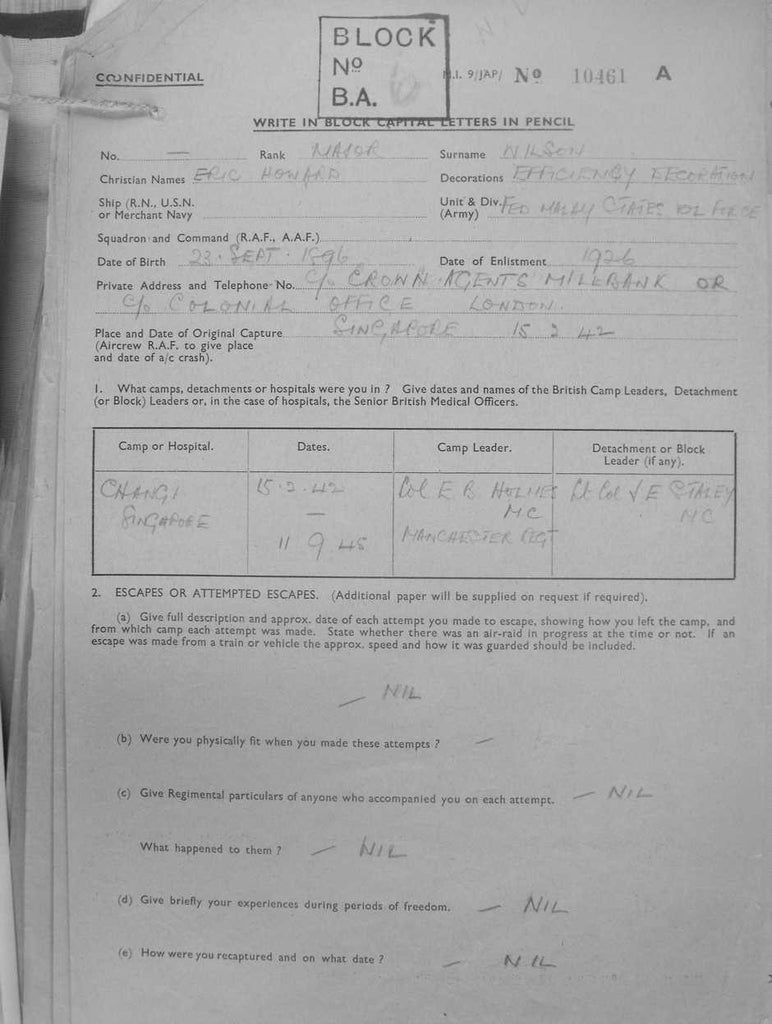 BLOCK
Nº
B.A.
CONFIDENTIAL
.I. 9/JAP/ Nº 10461 A
WRITE IN BLOCK CAPITAL LETTERS IN PENCIL
No. — Rank MAJOR Surname NILSON
Christian Names ERIC HOWARD Decorations EFFICIENCY DECORATION
Ship (R.N., U.S.N. or Merchant Navy
Unit & Div. (Army) FED MALAY STATES VOL FORCE
Squadron and Command (R.A.F., A.A.F.)
Date of Birth 23 . SEPT . 1896 Date of Enlistment 1926
Private Address and Telephone No. C/o CROWN AGENTS MILLBANK OR
C/o COLONIAL OFFICE LONDON.
Place and Date of Original Capture SINGAPORE 15 2 42
(Aircrew R.A.F. to give place
and date of a/c crash).
1. What camps, detachments or hospitals were you in ? Give dates and names of the British Camp Leaders, Detachment
(or Block) Leaders or, in the case of hospitals, the Senior British Medical Officers.
Camp or Hospital. Dates. Camp Leader. Detachment or Block
Leader (if any).
CHANGI 15.2.42 Col E B HOLMES Lt Col J E STALEY
SINGAPORE — MC MC
11 9 45 MANCHESTER REGT
2. ESCAPES OR ATTEMPTED ESCAPES. (Additional paper will be supplied on request if required).
(a) Give full description and approx. date of each attempt you made to escape, showing how you left the camp, and
from which camp each attempt was made. State whether there was an air-raid in progress at the time or not. If an
escape was made from a train or vehicle the approx. speed and how it was guarded should be included.
— NIL
(b) Were you physically fit when you made these attempts ? —
(c) Give Regimental particulars of anyone who accompanied you on each attempt. — NIL
What happened to them ? — NIL
(d) Give briefly your experiences during periods of freedom. — NIL
(e) How were you recaptured and on what date ? — NIL